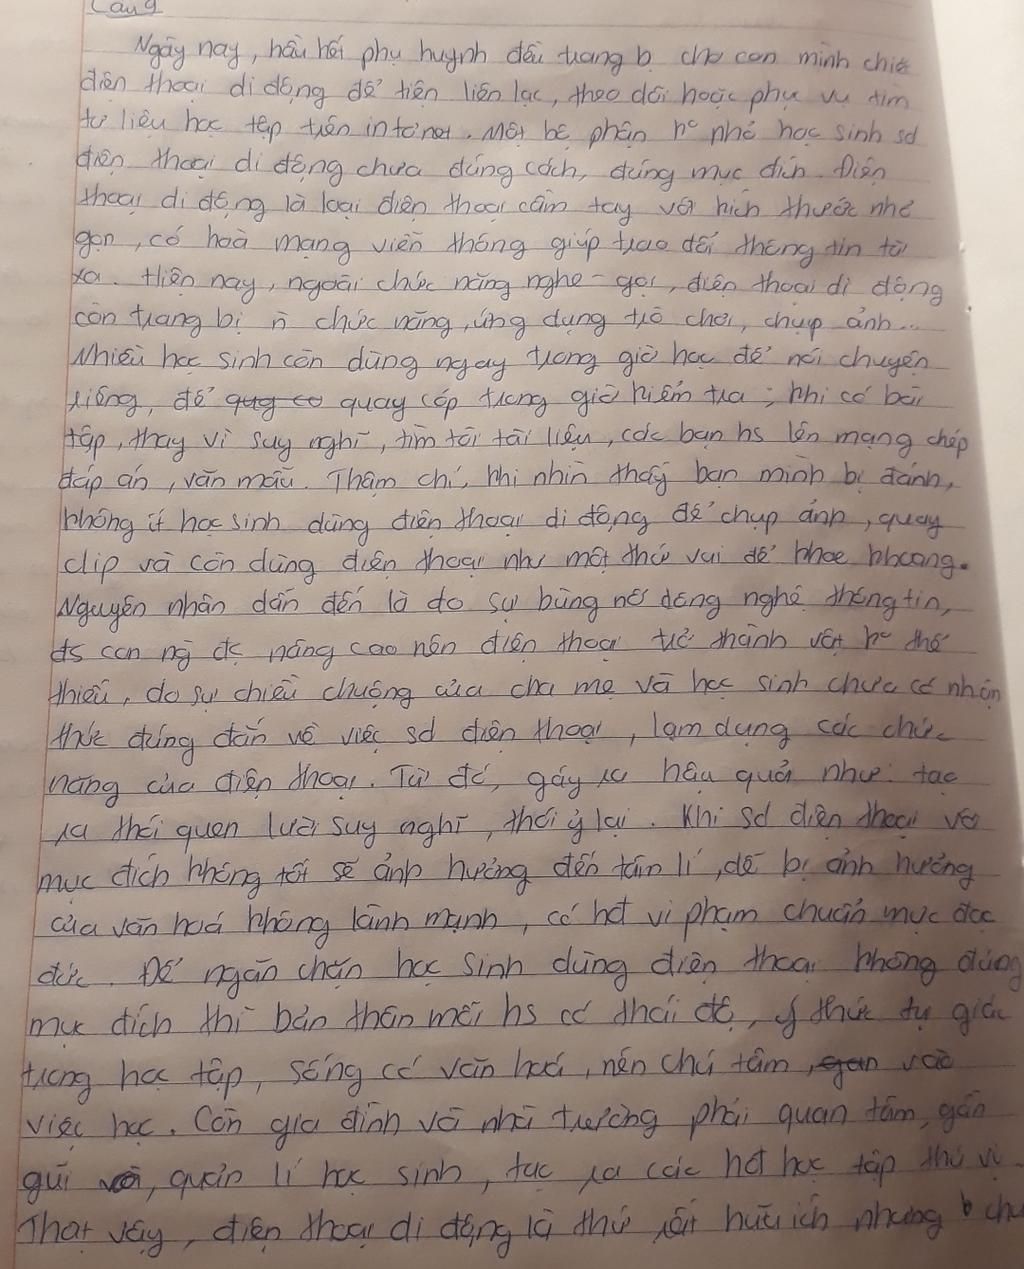 Câu 9
Ngày nay, hầu hết phụ huynh đều trang bị cho con mình chiếc
điện thoại di động để tiện liên lạc, theo dõi hoặc phục vụ tìm
tư liệu học tập trên internet. Một bộ phận ko nhỏ học sinh sd
điện thoại di động chưa đúng cách, đúng mục đích. Điện
thoại di động là loại điện thoại cầm tay với kích thước nhỏ
gọn, có hoà mạng viễn thông giúp trao đổi thông tin từ
xa. Hiện nay, ngoài chức năng nghe - gọi, điện thoại di động
còn trang bị n chức năng, ứng dụng trò chơi, chụp ảnh...
Nhiều học sinh còn dùng ngay trong giờ học để nói chuyện
riêng, để quay cóp trong giờ kiểm tra; khi có bài
tập, thay vì suy nghĩ, tìm tòi tài liệu, các bạn hs lên mạng chép
đáp án, văn mẫu. Thậm chí, khi nhìn thấy bạn mình bị đánh,
không ít học sinh dùng điện thoại di động để chụp ảnh, quay
clip và còn dùng điện thoại như một thú vui để khoe khoang.
Nguyên nhân dẫn đến là do sự bùng nổ công nghệ thông tin,
đs con ng đc nâng cao nên điện thoại trở thành vật ko thể
thiếu, do sự chiều chuộng của cha mẹ và học sinh chưa có nhận
thức đúng đắn về việc sd điện thoại, lạm dụng các chức
năng của điện thoại. Từ đó, gây ra hậu quả như: tạo
ra thói quen lười suy nghĩ, thói ỷ lại. Khi sd điện thoại vào
mục đích không tốt sẽ ảnh hưởng đến tâm lí, dễ bị ảnh hưởng
của văn hoá không lành mạnh, có hđ vi phạm chuẩn mực đạo
đức. Để ngăn chặn học sinh dùng điện thoại không đúng
mục đích thì bản thân mỗi hs có thái độ, ý thức tự giác
trong học tập, sống có văn hoá, nên chú tâm vào
việc học. Còn gia đình và nhà trường phải quan tâm, gần
gũi, quản lí học sinh, tạo ra các hđ học tập thú vị.
Thật vậy, điện thoại di động là thứ rất hữu ích nhưng